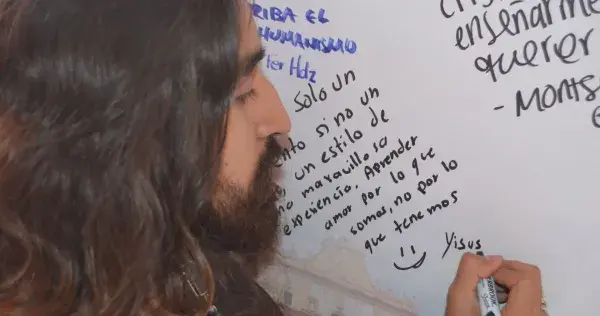 RIBA EL
HUMANISMO
ter Hdz
Solo un
nto si no un
un estilo de
maravillosa
experiencia. Aprender
amar por lo que
somos, no por lo
que tenemos
Yisus
enseñarme
querer
- MONTS